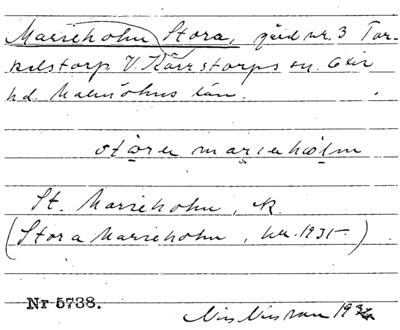 Marieholm Stora, gård nr. 3 Tor-
kelstorp V. Kärrstorps sn. Oxie
hd. Malmöhus län.
störe marieholm
St. Marieholm, k
(Stora Marieholm, kr. 1935)
Nr 5738.
Nils Nilsson 1932